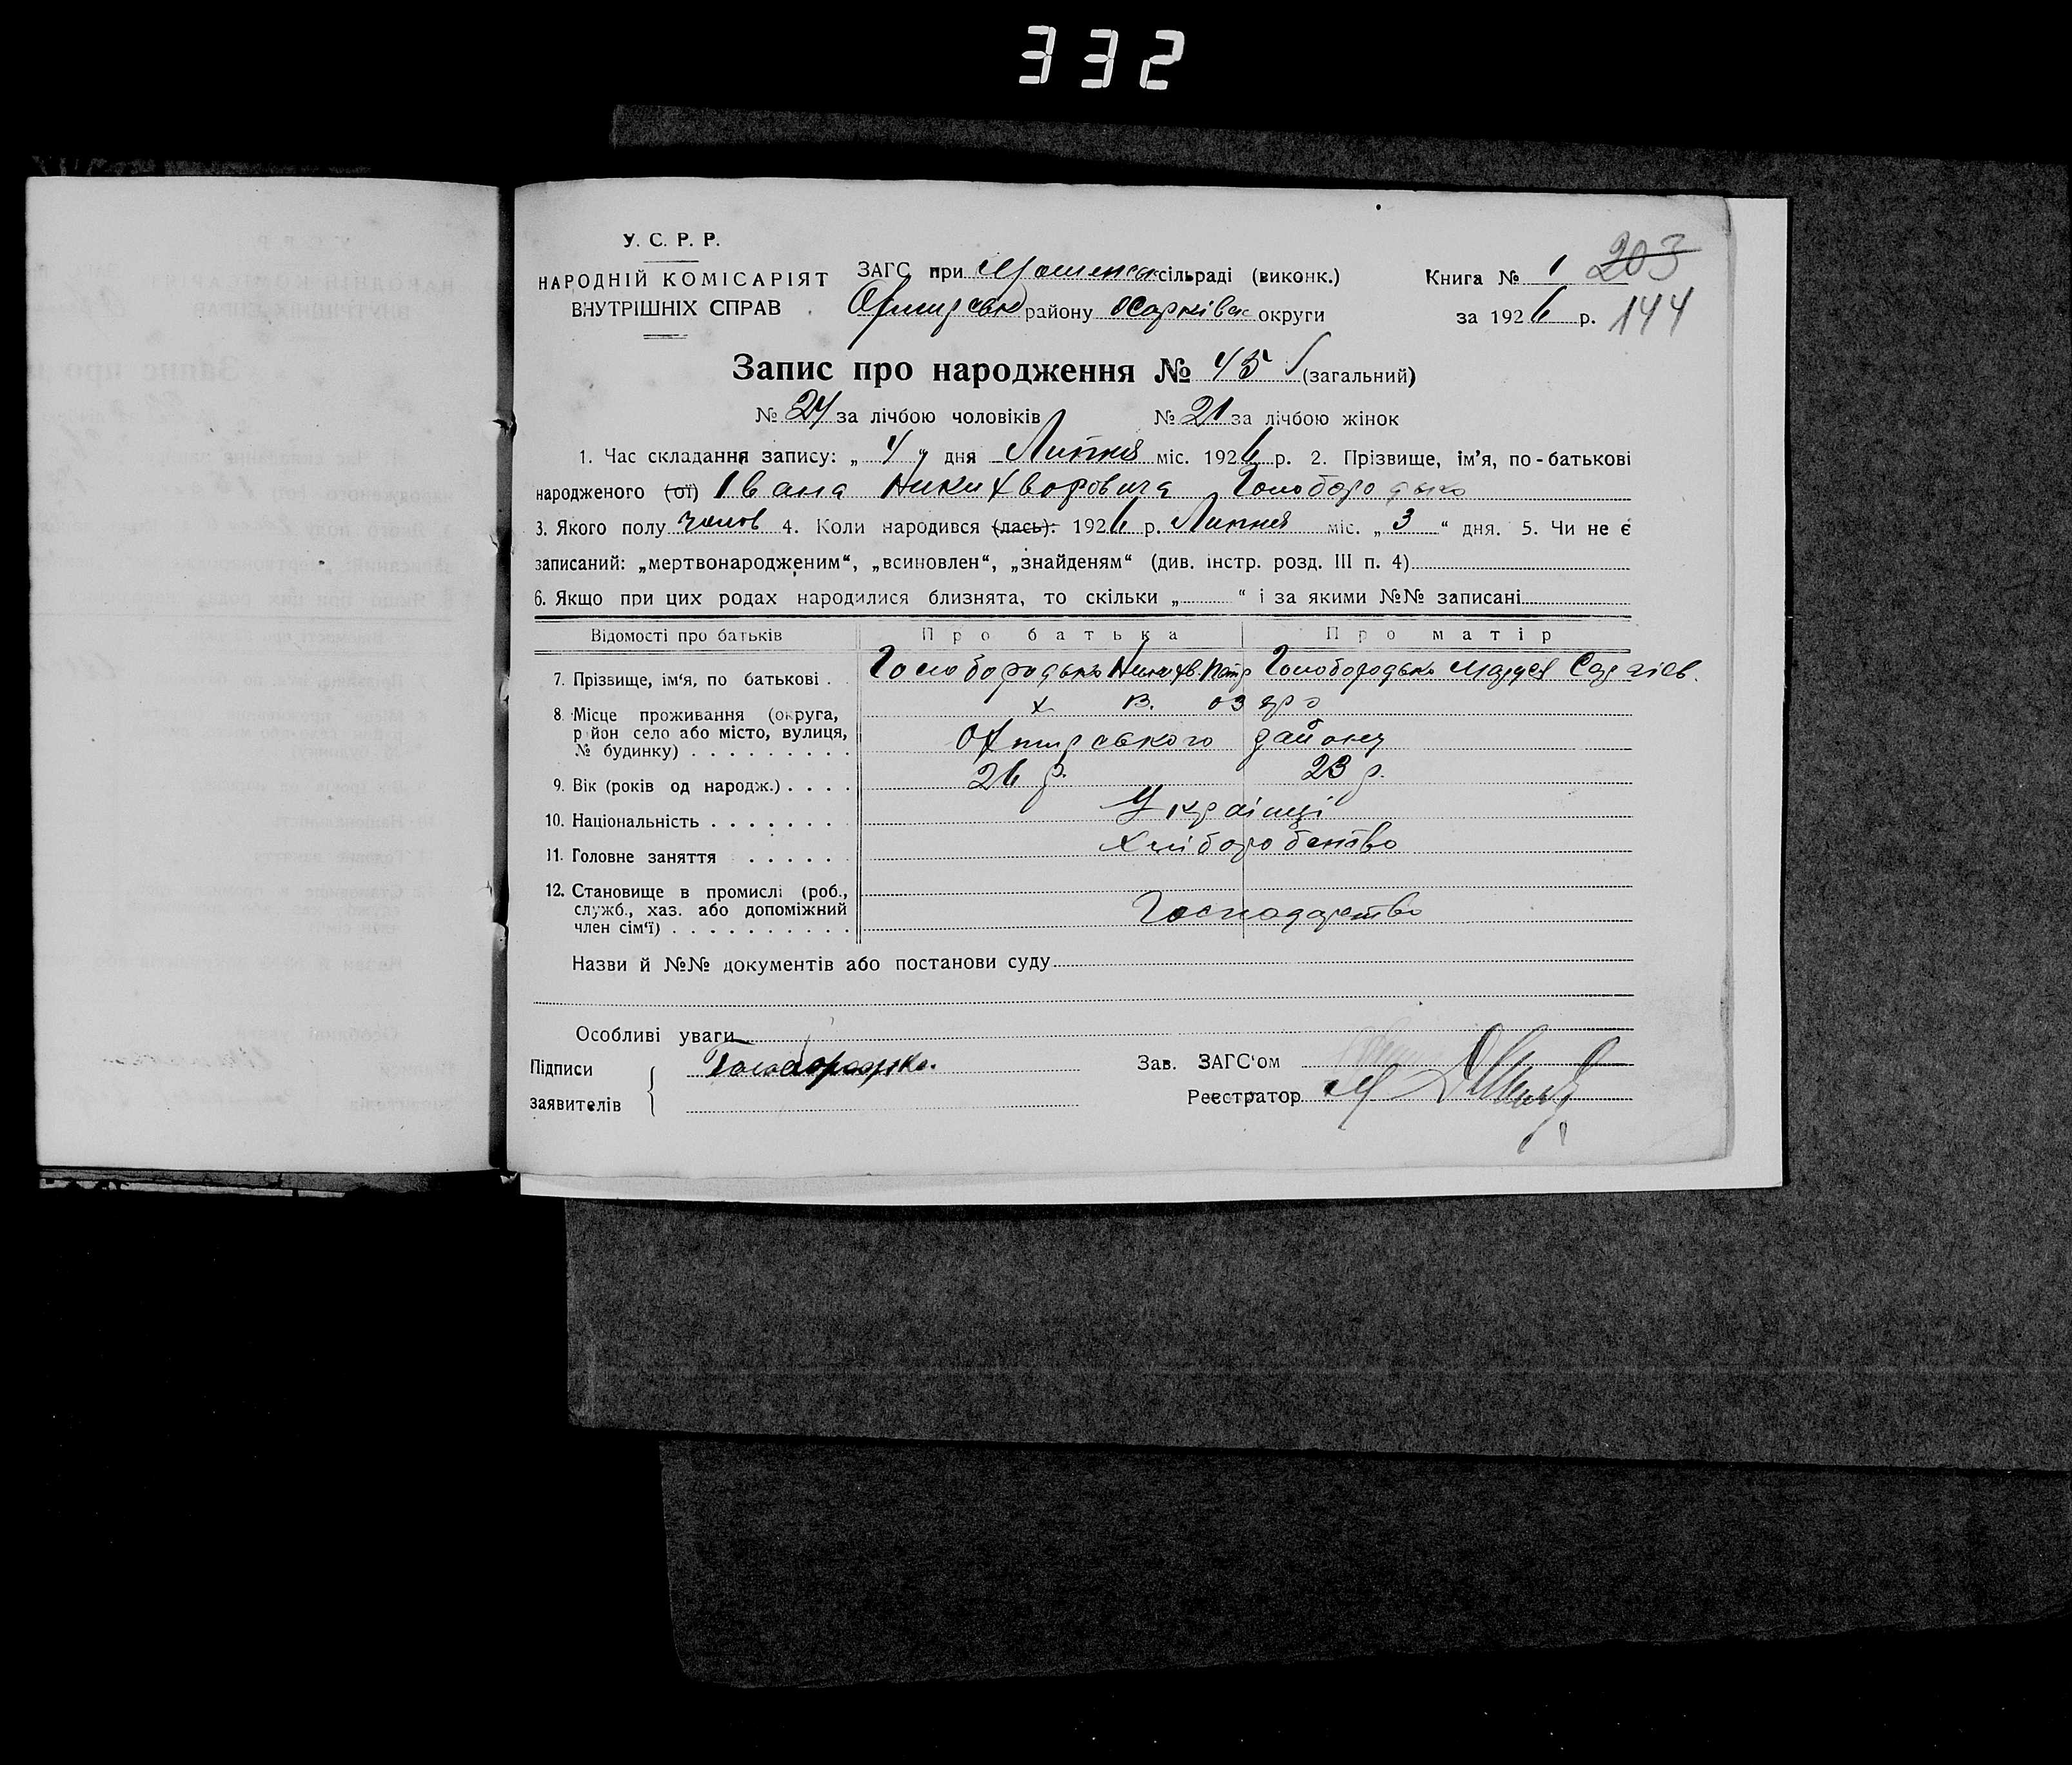 332
У. С. Р. Р.
НАРОДНІЙ КОМІСАРІЯТ
ВНУТРІШНІХ СПРАВ
ЗАГС при сільраді (виконк.)
району Харківск округи
Книга № 1 203
за 1926 р. 144
Запис про народження № 45 (загальний)
№ 24 за лічбою чоловіків № 21 за лічбою жінок
1. Час складання запису: „ 4 „ дня Липня міс. 1926 р. 2. Прізвище, ім'я, по-батькові
народженого (ої) Івана Никихворовича Голобородько
3. Якого полу чолов 4. Коли народився (лась): 1926 р. Липня міс. „ 3 “ дня. 5. Чи не є
записаний: „мертвонародженим“, „всиновлен“, „знайденям“ (див. інстр. розд. III п. 4)
6. Якщо при цих родах народилися близнята, то скільки „ “ і за якими №№ записані
Відомості про батьків Про батька Про матір
7. Прізвище, ім'я, по батькові . Голобородько Никихв. Петр Голобородько Сергієв.
8. Місце проживання (округа, х В. Озеро
район село або місто, вулиця,
№ будинку) . . . . . . . . . Охтирського району
9. Вік (років од народж.) . . . . 26 р. 23 р.
10. Національність . . . . . . . Українці
11. Головне заняття . . . . . Хліборобство
12. Становище в промислі (роб.,
служб., хаз. або допоміжний Господарство
член сім'ї) . . . . . . . . . .
Назви й №№ документів або постанови суду
Особливі уваги
Підписи Голобородько. Зав. ЗАГС'ом
заявителів Реєстратор